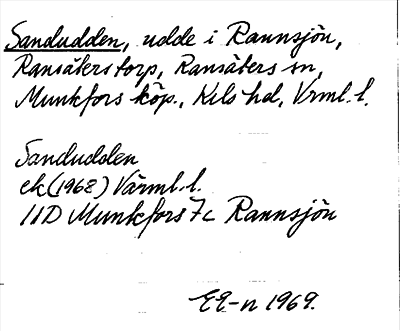 Sandudden, udde i Rannsjön,
Ransäters torp, Ransäters sn,
Munkfors köp., Kils hd, Vrml. l.
Sandudden
ek (1968) Värml. l.
11D Munkfors 7c Rannsjön
EE-n 1969.